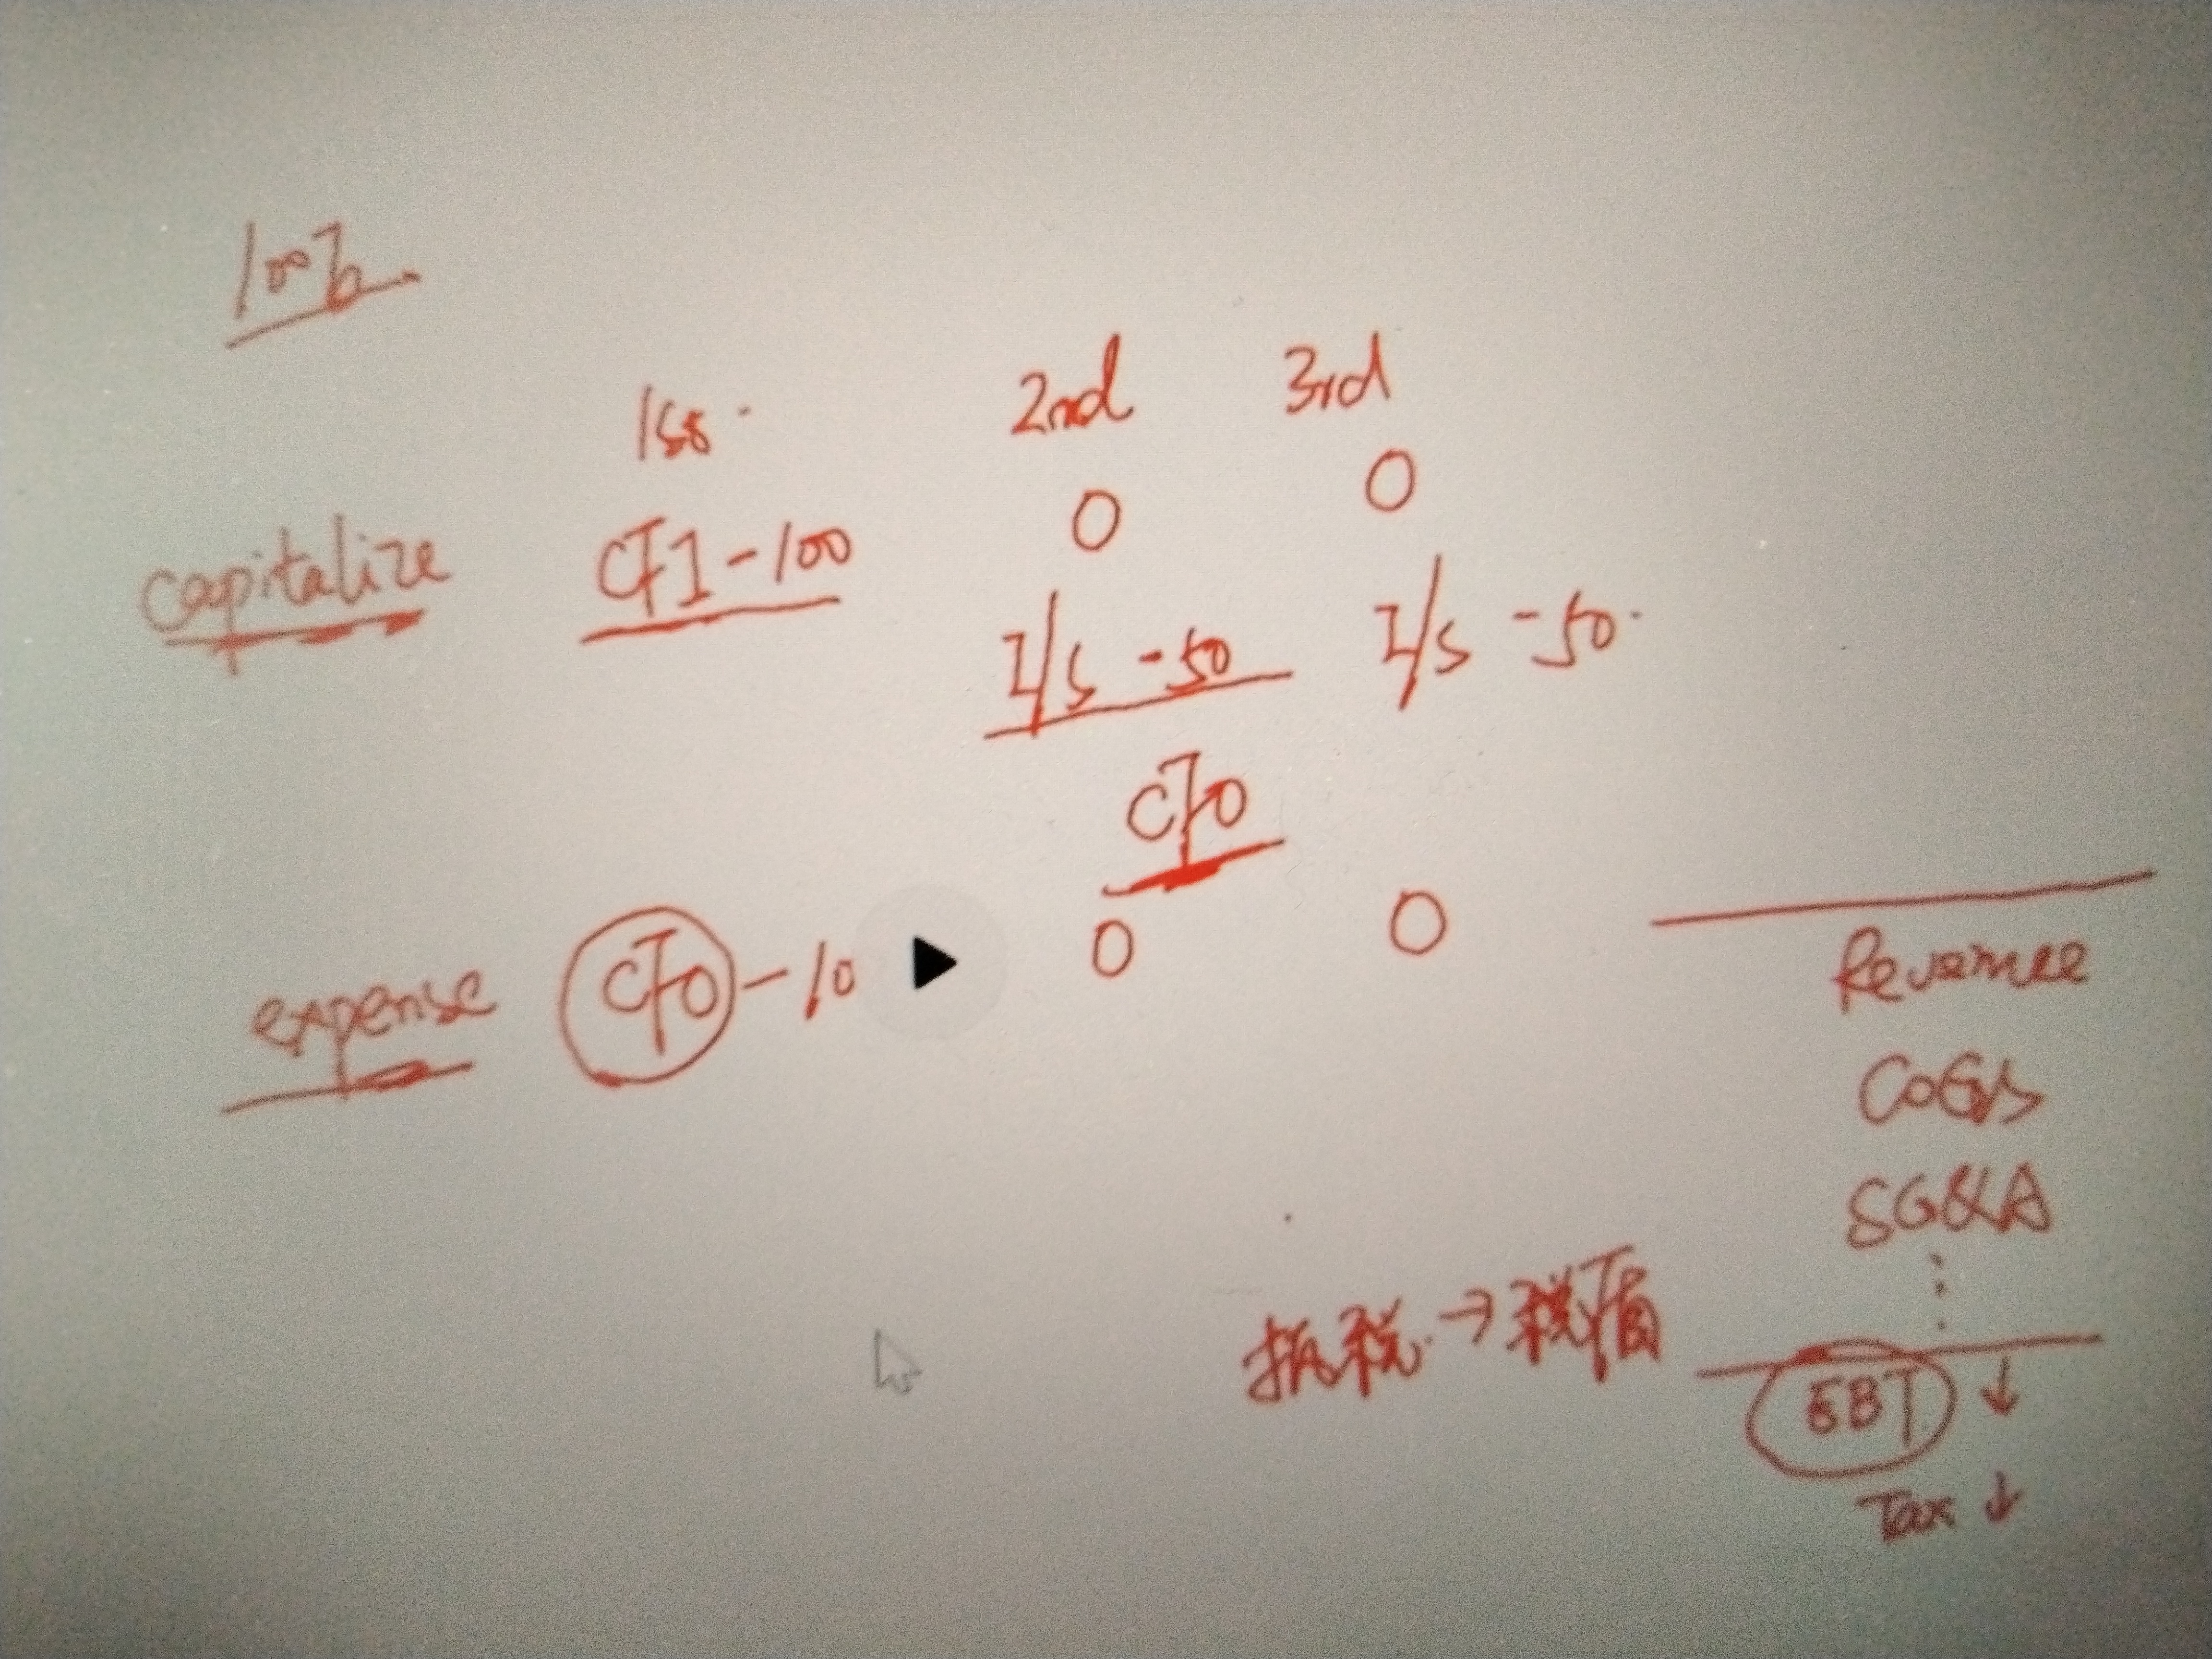 100万
1st 2nd 3rd
0 0
capitalize CFI -100
I/S -50 I/S -50
CFO
expense CFO -10 0 0
Revenue
COGS
SG&A
⋮
抵税 → 税盾
EBT ↓
Tax ↓